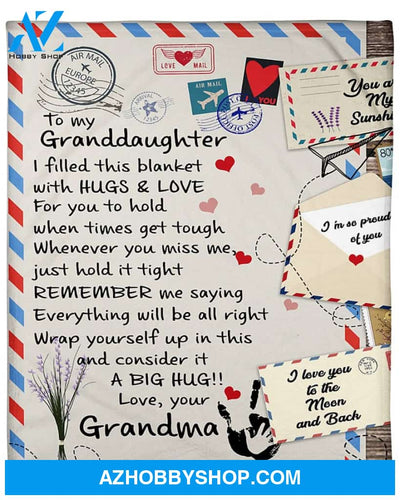 AZ
HOBBY SHOP
AIR MAIL
EUROPE
245
LOVE MAIL
AIR MAIL
YOU
To my
Granddaughter
I filled this blanket
with HUGS & LOVE
For you to hold
when times get tough
Whenever you miss me,
just hold it tight
REMEMBER me saying
Everything will be all right
Wrap yourself up in this
and consider it
A BIG HUG!!
Love, your
Grandma
You are
My
Sunshi
80
I'm so proud
of you
I love you
to the
Moon
and Back
AZHOBBYSHOP.COM